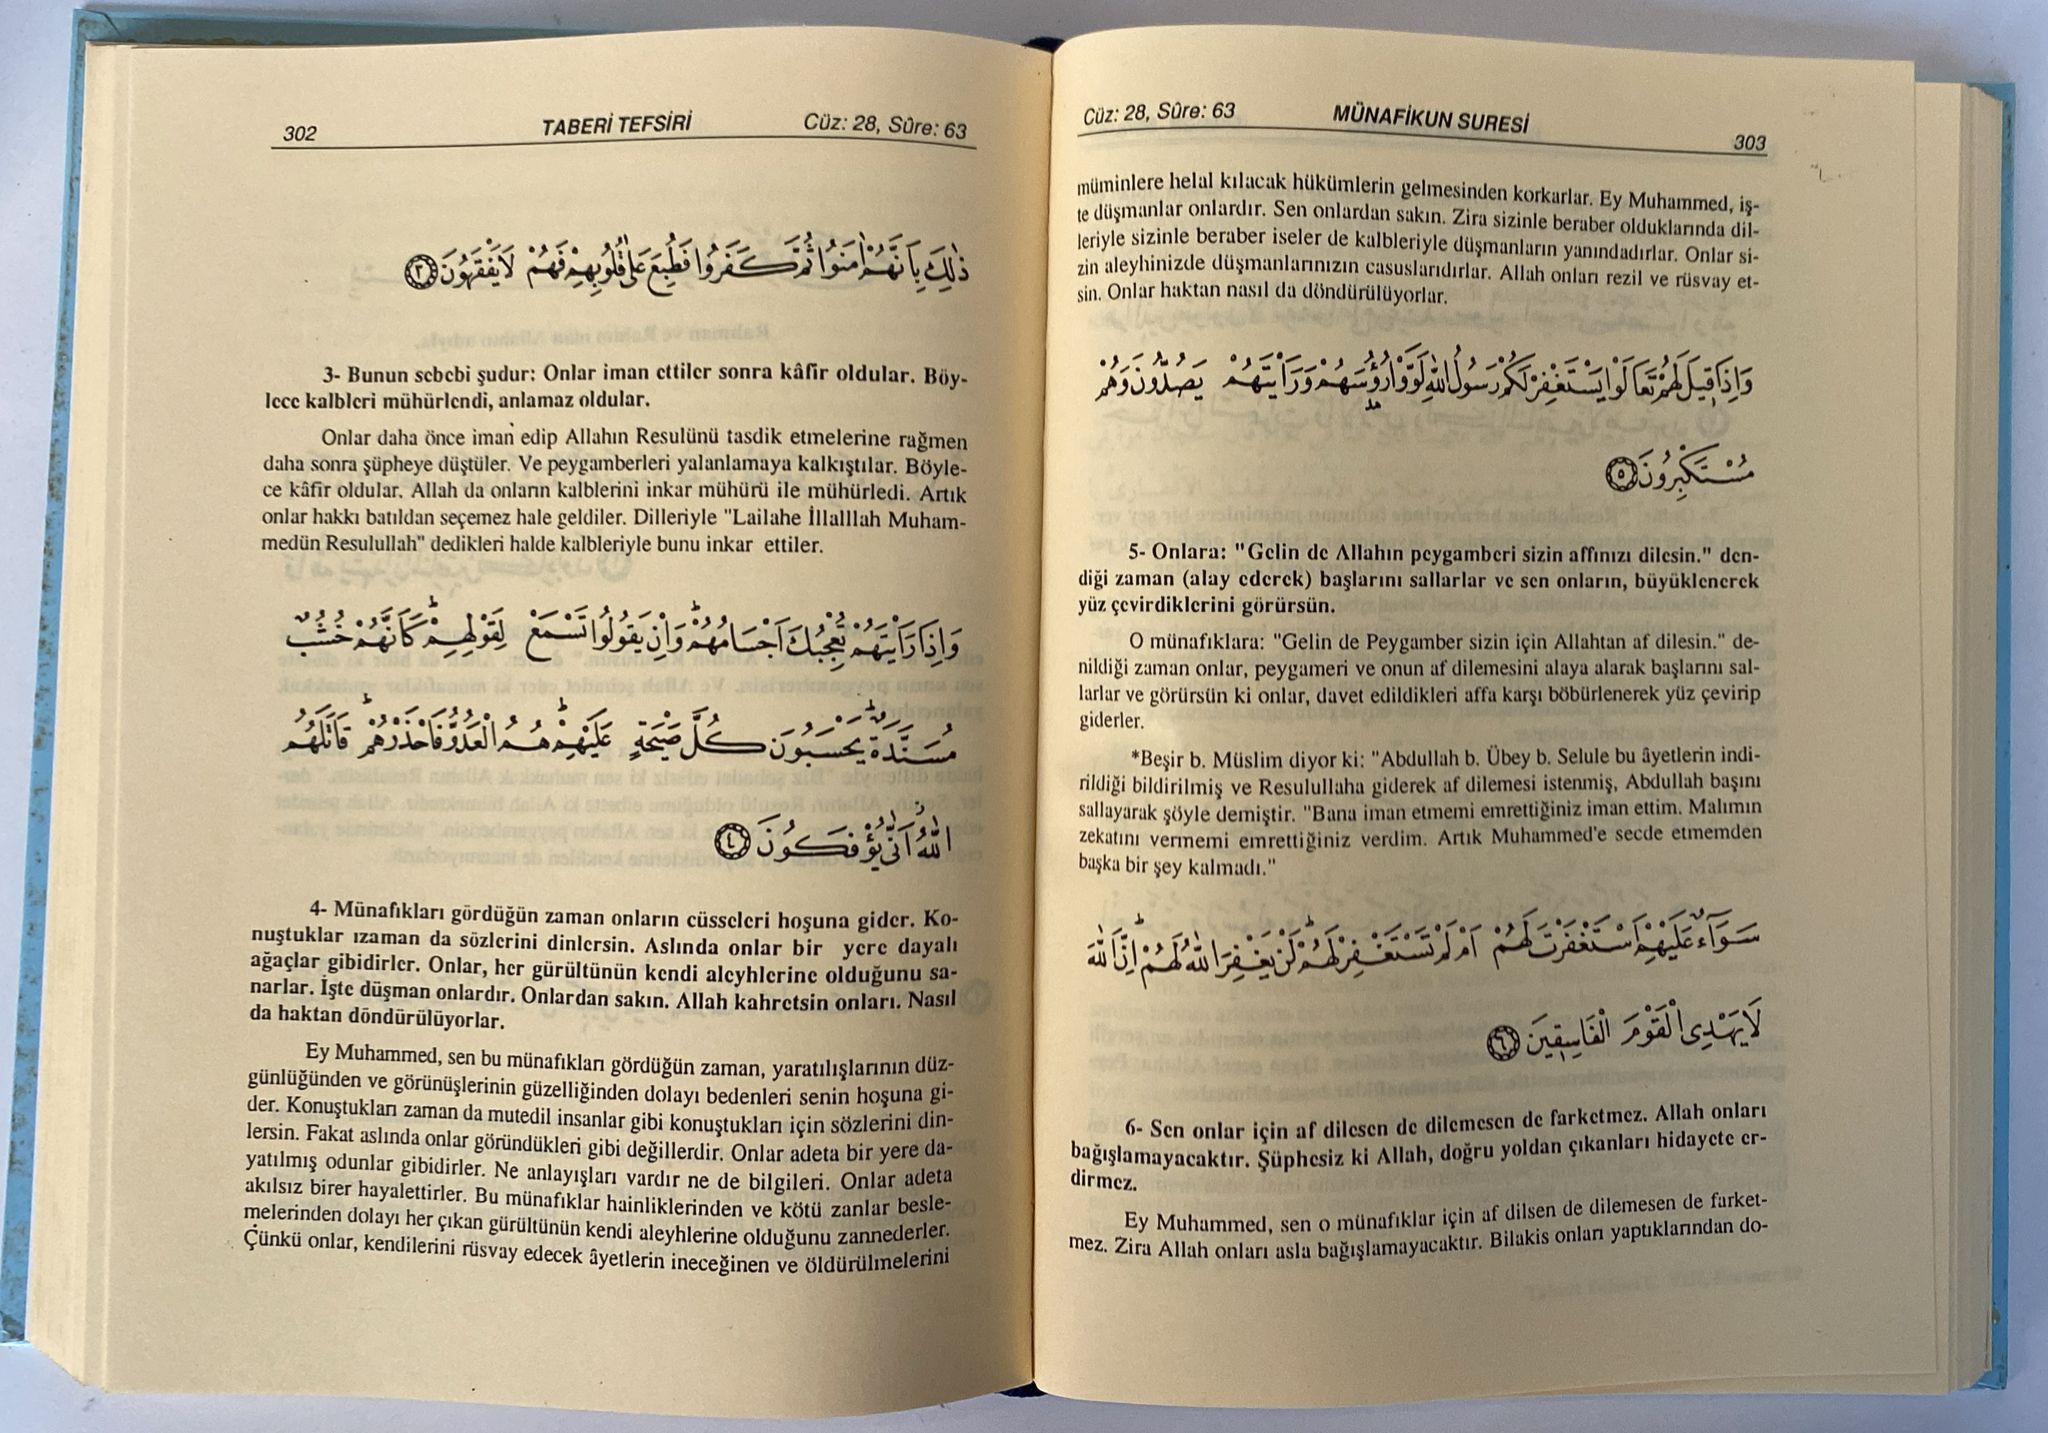 302 TABERİ TEFSİRİ Cüz: 28, Sûre: 63
ذٰلِكَ بِاَنَّهُمْ اٰمَنُوا ثُمَّ كَفَرُوا فَطُبِعَ عَلٰى قُلُوبِهِمْ فَهُمْ لَا يَفْقَهُونَ ٣
3- Bunun sebebi şudur: Onlar iman ettiler sonra kâfir oldular. Böy-
lece kalbleri mühürlendi, anlamaz oldular.
Onlar daha önce iman edip Allahın Resulünü tasdik etmelerine rağmen
daha sonra şüpheye düştüler. Ve peygamberleri yalanlamaya kalkıştılar. Böyle-
ce kâfir oldular. Allah da onların kalblerini inkar mühürü ile mühürledi. Artık
onlar hakkı batıldan seçemez hale geldiler. Dilleriyle "Lailahe İllalllah Muham-
medün Resulullah" dedikleri halde kalbleriyle bunu inkar ettiler.
وَاِذَا رَاَيْتَهُمْ تُعْجِبُكَ اَجْسَامُهُمْ وَاِنْ يَقُولُوا تَسْمَعْ لِقَوْلِهِمْ كَاَنَّهُمْ خُشُبٌ
مُسَنَّدَةٌ يَحْسَبُونَ كُلَّ صَيْحَةٍ عَلَيْهِمْ هُمُ الْعَدُوُّ فَاحْذَرْهُمْ قَاتَلَهُمُ
اللّٰهُ اَنّٰى يُؤْفَكُونَ ٤
4- Münafıkları gördüğün zaman onların cüsseleri hoşuna gider. Ko-
nuştuklar ızaman da sözlerini dinlersin. Aslında onlar bir yere dayalı
ağaçlar gibidirler. Onlar, her gürültünün kendi aleyhlerine olduğunu sa-
narlar. İşte düşman onlardır. Onlardan sakın. Allah kahretsin onları. Nasıl
da haktan döndürülüyorlar.
Ey Muhammed, sen bu münafıkları gördüğün zaman, yaratılışlarının düz-
günlüğünden ve görünüşlerinin güzelliğinden dolayı bedenleri senin hoşuna gi-
der. Konuştukları zaman da mutedil insanlar gibi konuştukları için sözlerini din-
lersin. Fakat aslında onlar göründükleri gibi değillerdir. Onlar adeta bir yere da-
yatılmış odunlar gibidirler. Ne anlayışları vardır ne de bilgileri. Onlar adeta
akılsız birer hayalettirler. Bu münafıklar hainliklerinden ve kötü zanlar besle-
melerinden dolayı her çıkan gürültünün kendi aleyhlerine olduğunu zannederler.
Çünkü onlar, kendilerini rüsvay edecek âyetlerin ineceğinen ve öldürülmelerini
Cüz: 28, Sûre: 63 MÜNAFİKUN SURESİ 303
müminlere helal kılacak hükümlerin gelmesinden korkarlar. Ey Muhammed, iş-
te düşmanlar onlardır. Sen onlardan sakın. Zira sizinle beraber olduklarında dil-
leriyle sizinle beraber iseler de kalbleriyle düşmanların yanındadırlar. Onlar si-
zin aleyhinizde düşmanlarınızın casuslarıdırlar. Allah onları rezil ve rüsvay et-
sin. Onlar haktan nasıl da döndürülüyorlar.
وَاِذَا قِيلَ لَهُمْ تَعَالَوْا يَسْتَغْفِرْ لَكُمْ رَسُولُ اللّٰهِ لَوَّوْا رُؤُسَهُمْ وَرَاَيْتَهُمْ يَصُدُّونَ وَهُمْ
مُسْتَكْبِرُونَ ٥
5- Onlara: "Gelin de Allahın peygamberi sizin affınızı dilesin." den-
diği zaman (alay ederek) başlarını sallarlar ve sen onların, büyüklenerek
yüz çevirdiklerini görürsün.
O münafıklara: "Gelin de Peygamber sizin için Allahtan af dilesin." de-
nildiği zaman onlar, peygameri ve onun af dilemesini alaya alarak başlarını sal-
larlar ve görürsün ki onlar, davet edildikleri affa karşı böbürlenerek yüz çevirip
giderler.
*Beşir b. Müslim diyor ki: "Abdullah b. Übey b. Selule bu âyetlerin indi-
rildiği bildirilmiş ve Resulullaha giderek af dilemesi istenmiş, Abdullah başını
sallayarak şöyle demiştir. "Bana iman etmemi emrettiğiniz iman ettim. Malımın
zekatını vermemi emrettiğiniz verdim. Artık Muhammed'e secde etmemden
başka bir şey kalmadı."
سَوَٓاءٌ عَلَيْهِمْ اَسْتَغْفَرْتَ لَهُمْ اَمْ لَمْ تَسْتَغْفِرْ لَهُمْ لَنْ يَغْفِرَ اللّٰهُ لَهُمْ اِنَّ اللّٰهَ
لَا يَهْدِى الْقَوْمَ الْفَاسِقِينَ ٦
6- Sen onlar için af dilesen de dilemesen de farketmez. Allah onları
bağışlamayacaktır. Şüphesiz ki Allah, doğru yoldan çıkanları hidayete er-
dirmez.
Ey Muhammed, sen o münafıklar için af dilsen de dilemesen de farket-
mez. Zira Allah onları asla bağışlamayacaktır. Bilakis onları yaptıklarından do-